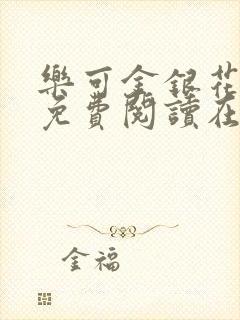 樂可金銀花
免費閱讀在
金福